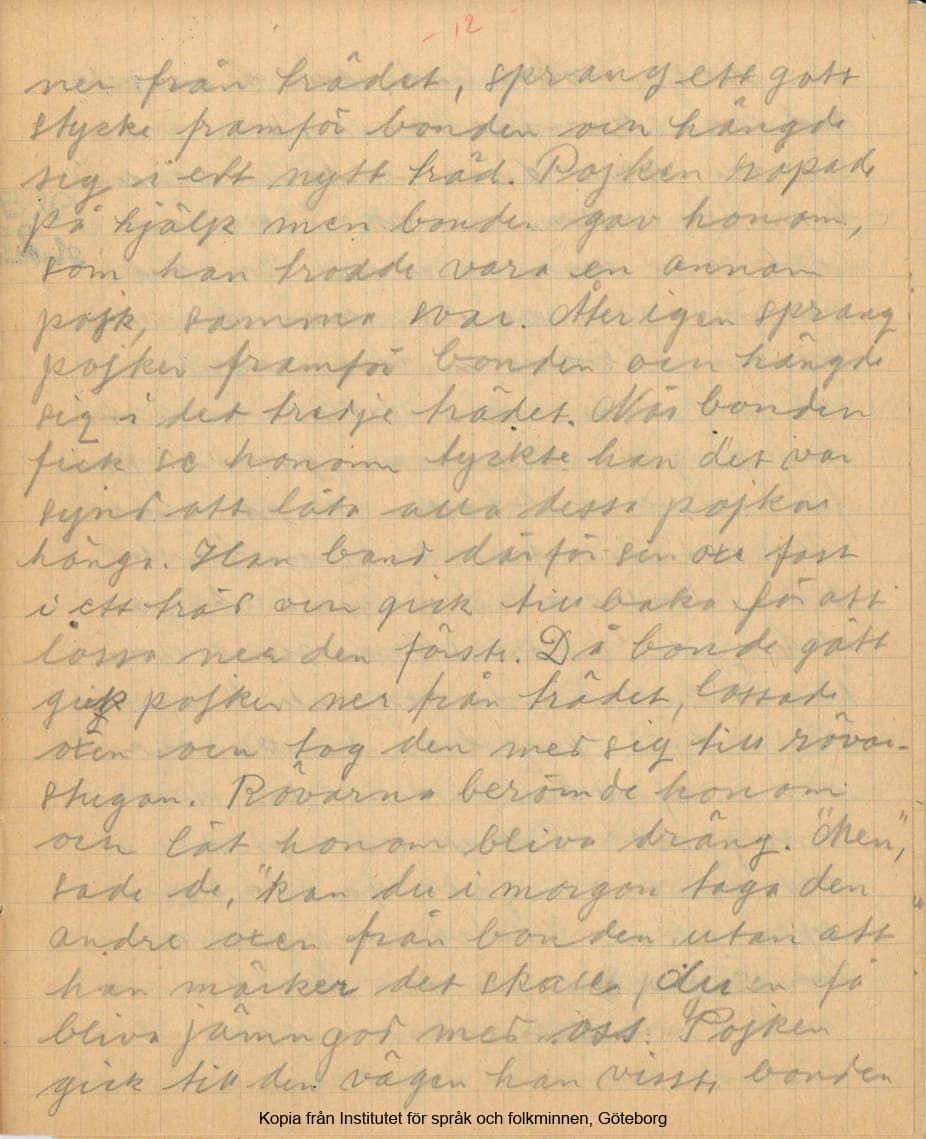 - 12 -
ner från trädet, sprang ett gott
stycke framför bonden ocn hängde
sig i ett nytt träd. Pojken ropade
på hjälp men bonden gav honom,
som han trodde vara en annan
pojk, samma svar. Återigen sprang
pojken framför bonden ocn hängde
sig i det tredje trädet. När bonden
fick se honom tyckte han det var
synd att låta alla dessa pojkar
hänga. Han band därför sin oxe fast
i ett träd ocn gick till baka för att
lossa ner den förste. Då bonde gått
gick pojken ner från trädet, lossade
oxen ocn tog den med sig till rövar-
stugan. Rövarna berömde honom
och lät honom bliva dräng. "Men",
sade de, "kan du i morgon taga den
andre oxen från bonden utan att
han märker det skall du en få
bliva jämngod med oss. Pojken
gick till den vägen han visste bonden
Kopia från Institutet för språk och folkminnen, Göteborg